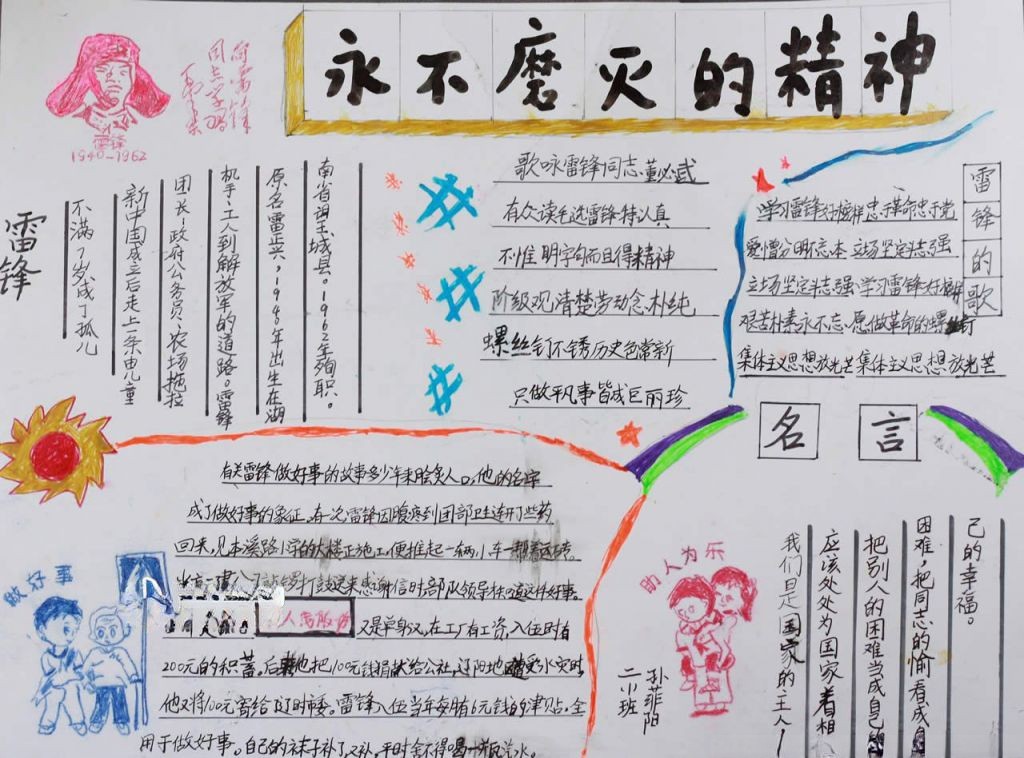 永不磨灭的精神
向雷锋
同志学习
毛泽东
雷锋
1940-1962
雷锋
原名雷正兴，1940年出生在湖
南省望玉城县。1962年殉职。
机手、工人到解放军的道路。雷锋
团长、政府公务员、农场拖拉
新中国成立后走上一条由儿童
不满7岁成了孤儿
歌咏雷锋同志董必武
有众读毛选雷锋特认真
不惟明字句而且得精神
阶级观清楚劳动念朴纯
螺丝钉不锈历史色常新
只做平凡事皆成巨丽珍
雷锋的歌
学习雷锋好榜样忠于革命忠于党
爱憎分明不忘本立场坚定志强
立场坚定斗志强学习雷锋好榜样
艰苦朴素永不忘愿做革命的螺丝钉
集体主义思想放光芒集体主义思想放光芒
有关雷锋做好事的故事多少年来脍炙人口，他的名字
成了做好事的象征，有一次雷锋因腹疼到团部卫生连开了些药
回来，见本溪路小学的大楼正施工，便推起一辆小车帮着
打鼓送来感谢信时部队领导 这件好事。
人民服
又是单身汉，在工厂有工资，入伍时有
200元的积蓄。后来他把100元钱捐献给公社，辽阳地遭受水灾时，
他又将100元寄给辽阳市委。雷锋入伍当年每月6元钱的津贴，全
用于做好事。自己的袜子补了又补，平时舍不得喝一瓶汽水。
做好事
助人为乐
二小班
孙菲阳
名言
我们是国家的主人
应该处处为国家着相
把别人的困难当成自己的
困难，把同志的愉看成自
己的幸福。